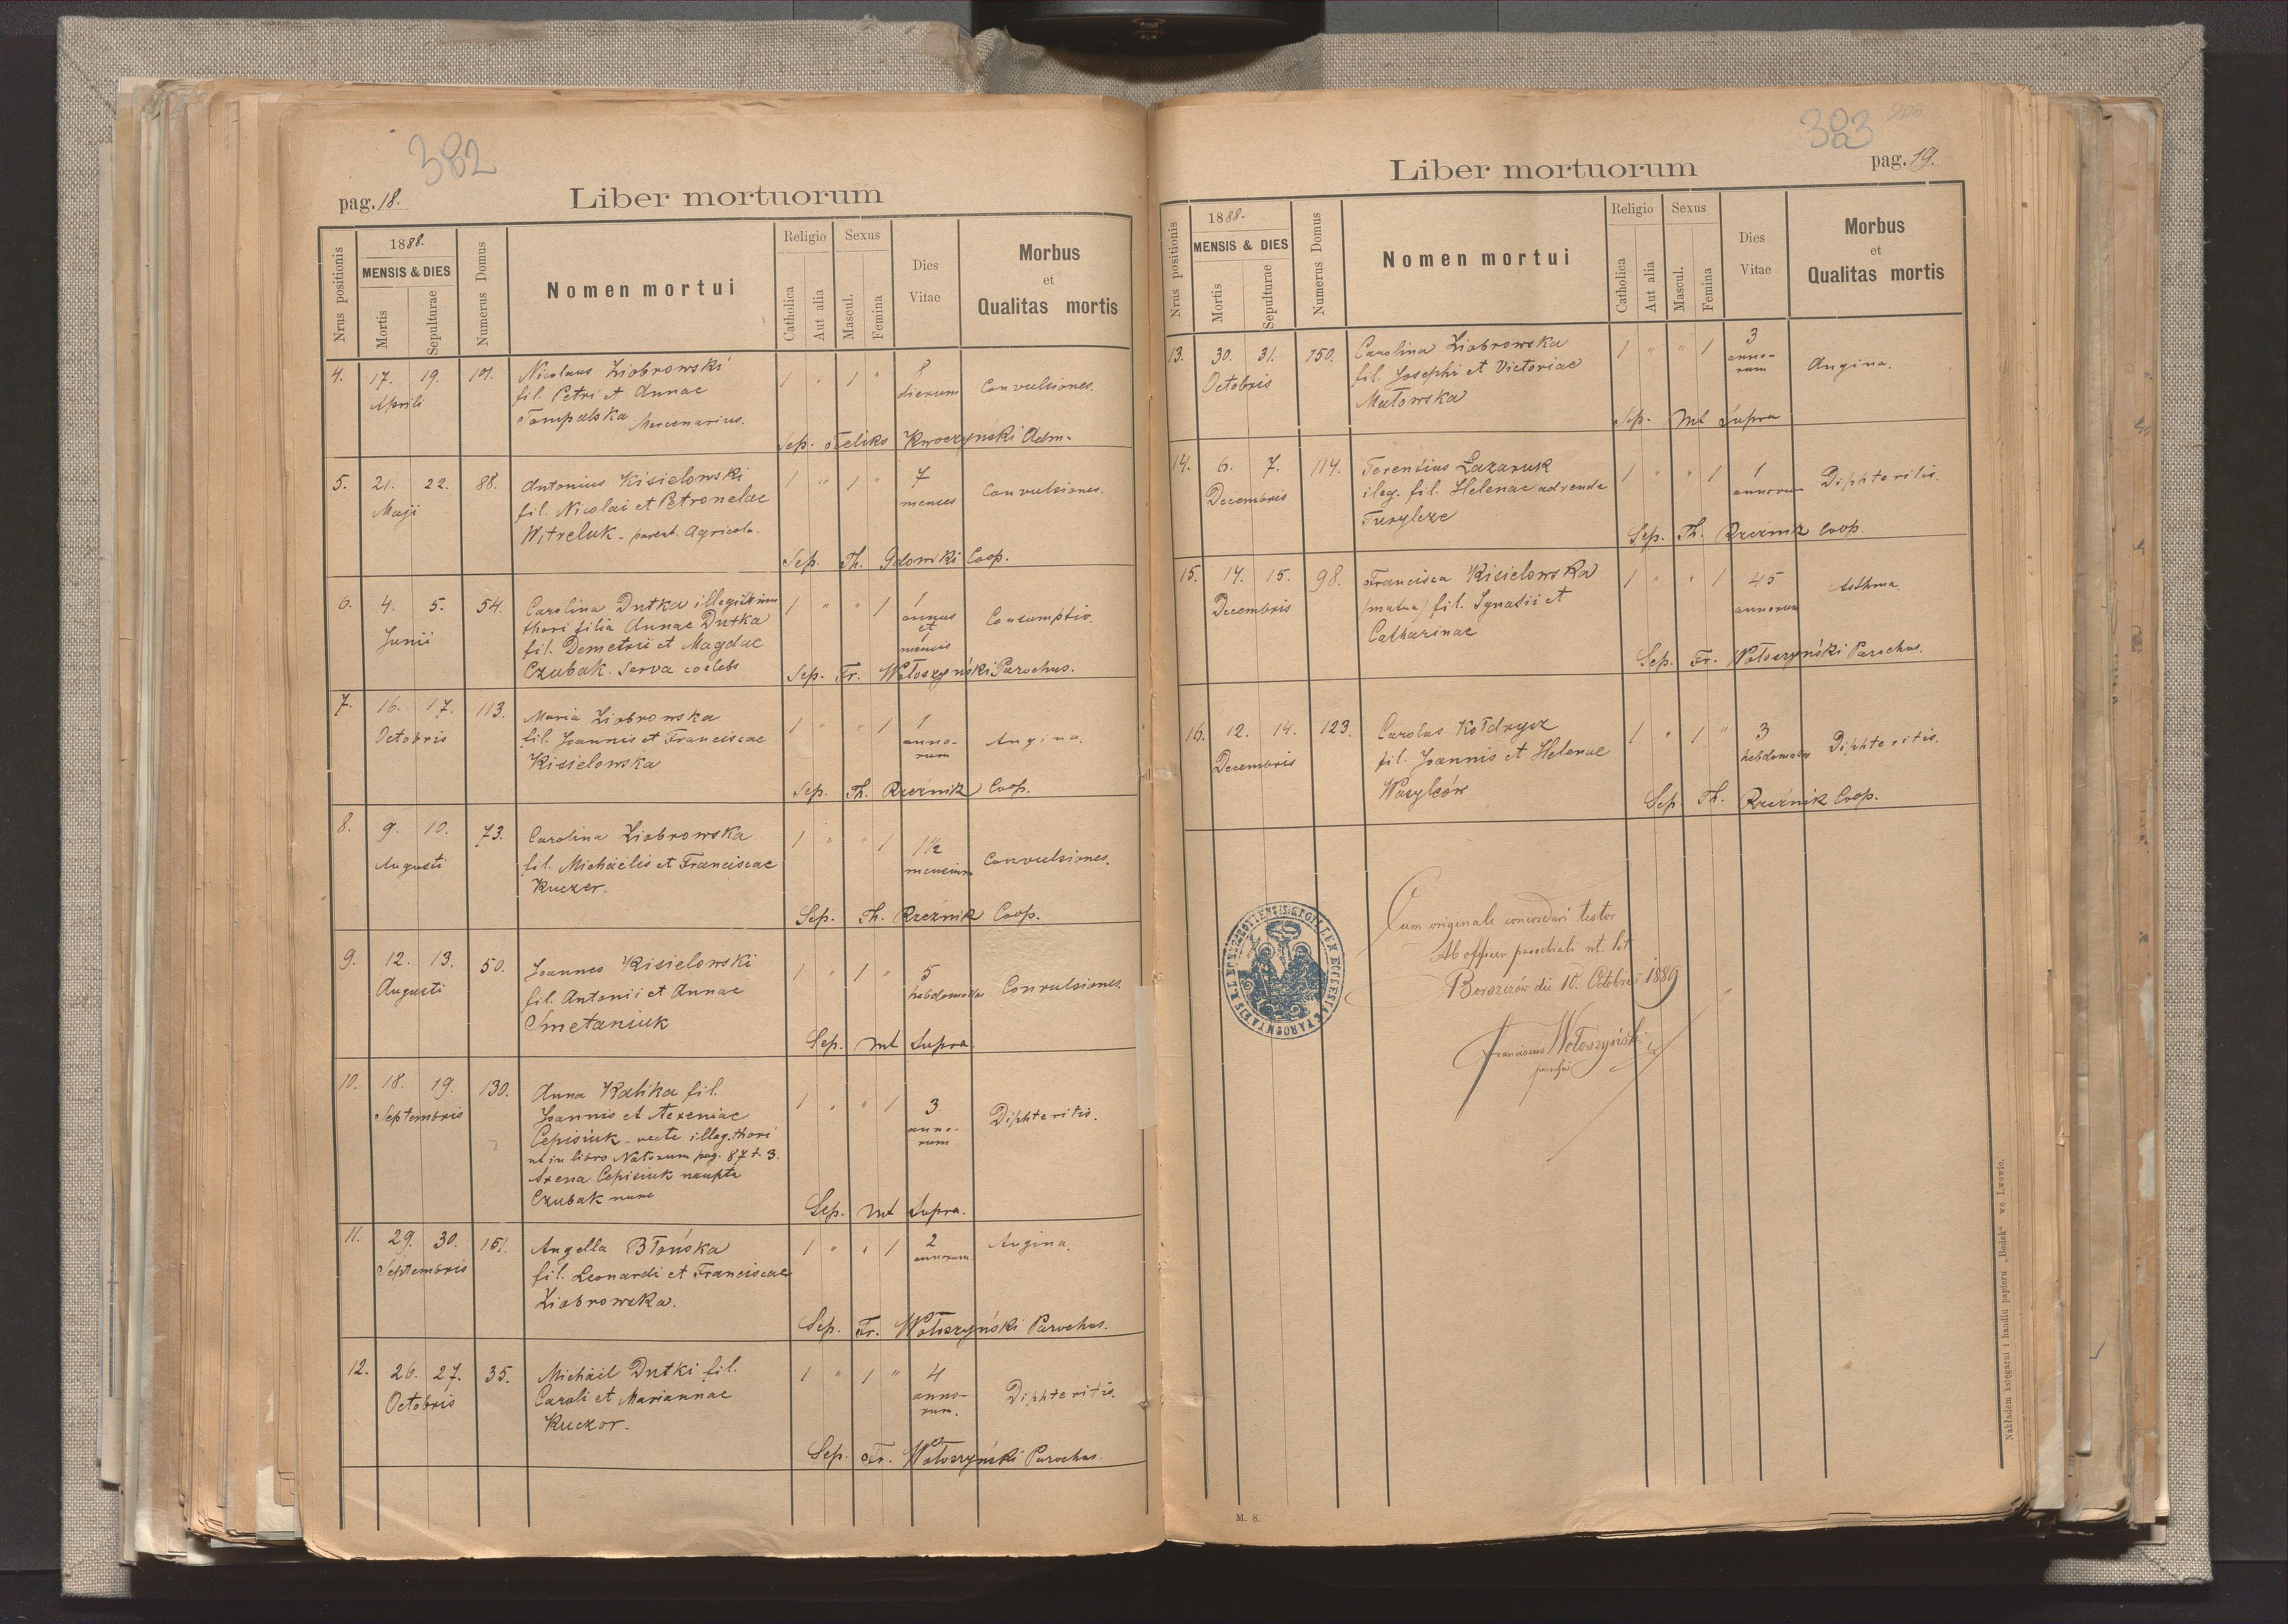 382
pag. 18.
Liber mortuorum
Nrus positionis
1888.
MENSIS & DIES
Mortis
Sepulturae
Numerus Domus
Nomen mortui
Religio
Catholica
Aut alia
Sexus
Mascul.
Femina
Dies
Vitae
Morbus
et
Qualitas mortis
4. 17. 19. 101. Nicolaus Ziobrowski 1 " 1 " 8
Aprili fil. Petri et Annae dierum Convulsiones.
Tompalska Mercenarius.
Sep. Feliks Kwoczynski Adm.
5. 21. 22. 88. Antonius Kisielowski 1 " 1 " 7
Maji fil. Nicolai et Petronelae menses Convulsiones.
Witreluk - parent. Agricola.
Sep. Th. Coop.
6. 4. 5. 54. Carolina Dutka illegittimi 1 " " 1 1
Junii thori filia Annae Dutka annus Consumptio.
fil. Demetrii et Magdae et 1
Czubak. Serva coelebs mensis
Sep. Fr. Wołoszyński Parochus.
7. 16. 17. 113. Maria Ziobrowska 1 " " 1 1
Octobris fil. Joannis et Franciscae anno- Angina.
Kisielowska rum
Sep. Th. Rzeźnik Coop.
8. 9. 10. 73. Carolina Ziobrowska 1 " " 1 1 1/2
Augusti fil. Michaëlis et Franciscae mensium Convulsiones.
Kuczer.
Sep. Th. Rzeźnik Coop.
9. 12. 13. 50. Joannes Kisielowski 1 " 1 " 5
Augusti fil. Antonii et Annae hebdomadas Convulsiones
Smetaniuk
Sep. ut Supra.
10. 18. 19. 130. Anna Kalika fil. 1 " " 1 3
Septembris Joannis et Axeniae anno- Diphteritis.
Cepisiuk - recte illeg. thori rum
ut in libro Natorum pag. 87 t. 3.
Axena Cepisiuk nupta
Czubak nunc
Sep. ut Supra.
11. 29. 30. 151. Angella Błońska 1 " " 1 2 Angina.
Septembris fil. Leonardi et Franciscae annorum
Ziobrowska.
Sep. Fr. Wołoszyński Parochus.
12. 26. 27. 35. Michäel Dutki fil. 1 " 1 " 4
Octobris Caroli et Mariannae anno- Diphteritis.
Kuczor. rum.
Sep. Fr. Wołoszyński Parochus.
383 206
Liber mortuorum
pag. 19.
Nrus positionis
1888.
MENSIS & DIES
Mortis
Sepulturae
Numerus Domus
Nomen mortui
Religio
Catholica
Aut alia
Sexus
Mascul.
Femina
Dies
Vitae
Morbus
et
Qualitas mortis
13. 30. 31. 150. Carolina Ziobrowska 1 " " 1 3
Octobris fil. Josephi et Victoriae anno- Angina.
Matowska rum
Sep. ut Supra
14. 6. 7. 114. Terentius Łazaruk 1 " " 1 1 Diphteritis.
Decembris ileg. fil. Helenae advenae annorum
Turylcze
Sep. Th. Rzeźnik Coop.
15. 14. 15. 98. Francisca Kisielowska 1 " " 1 45 Asthma.
Decembris /mutua/ fil. Ignatii et annorum
Catharinae
Sep. Fr. Wołoszyński Parochus.
16. 12. 14. 123. Carolus Kołdrycz 1 " 1 " 3
Decembris fil. Joannis et Helenae hebdomadas Diphteritis.
Wasylców
Sep. Th. Rzeźnik Coop.
Cum originale concordari testor
Ab officio parochiali rit. lat.
Borszczów die 10. Octobris 1889
Franciscus Wołoszyński
parochus
SIGILLUM ECCLESIAE PAROCHIALIS R. L.
M. 8.
Nakładem księgarni i handlu papieru „Bodek“ we Lwowie.